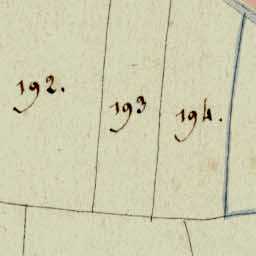 192.
193
194.